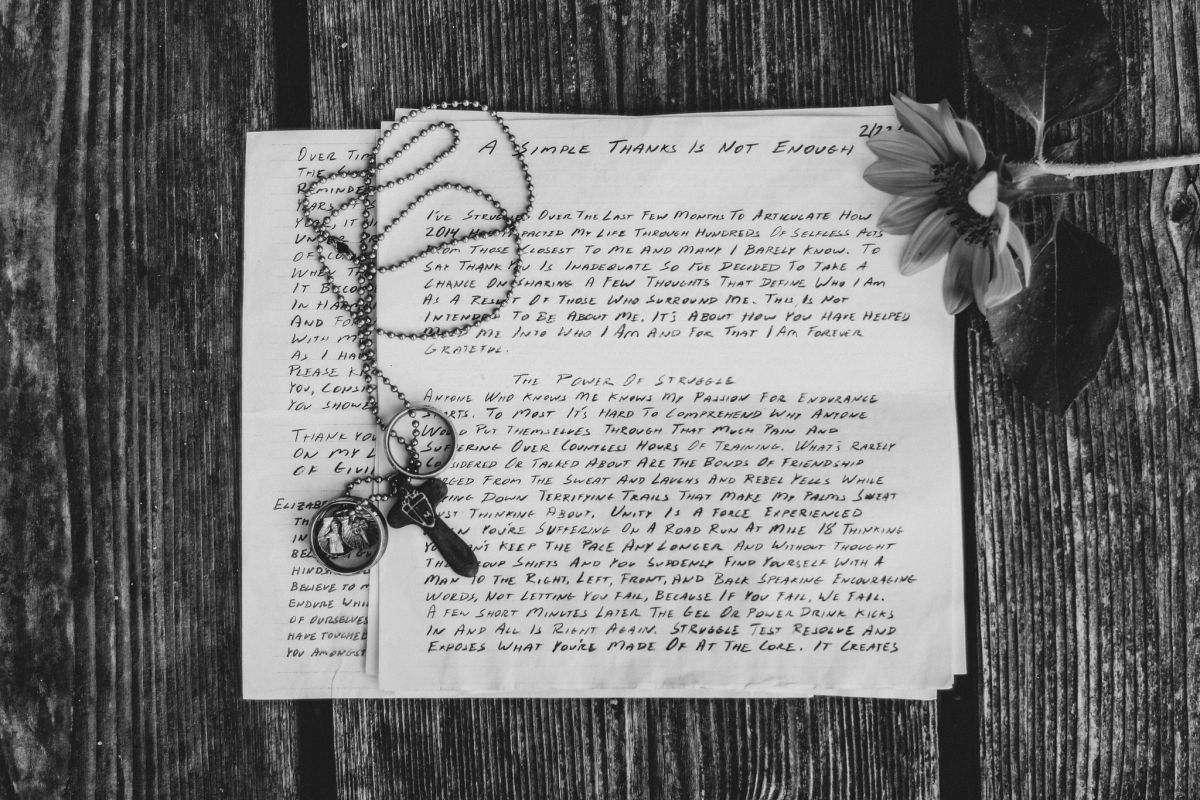 OVER TIM
THE
REMINDE
YEARS
YEAR, IT
UNDER
OF
WHEN T
IT BECO
IN HAR
AND FOR
WITH M
AS I HA
PLEASE K
YOU, CONSI
YOU SHOWE
THANK YOU
ON MY L
OF GIVI
ELIZAB
TH
IN
BEL
HINDS
BELIEVE TO M
ENDURE WHIL
OF OURSELVES
HAVE TOUCHED
YOU AMONGST
2/22
A SIMPLE THANKS IS NOT ENOUGH
I'VE STRUGGLED OVER THE LAST FEW MONTHS TO ARTICULATE HOW
2014 HAS IMPACTED MY LIFE THROUGH HUNDREDS OF SELFLESS ACTS
FROM THOSE CLOSEST TO ME AND MANY I BARELY KNOW. TO
SAY THANK YOU IS INADEQUATE SO I'VE DECIDED TO TAKE A
CHANCE ON SHARING A FEW THOUGHTS THAT DEFINE WHO I AM
AS A RESULT OF THOSE WHO SURROUND ME. THIS IS NOT
INTENDED TO BE ABOUT ME. IT'S ABOUT HOW YOU HAVE HELPED
MOLD ME INTO WHO I AM AND FOR THAT I AM FOREVER
GRATEFUL.
THE POWER OF STRUGGLE
ANYONE WHO KNOWS ME KNOWS MY PASSION FOR ENDURANCE
SPORTS. TO MOST IT'S HARD TO COMPREHEND WHY ANYONE
WOULD PUT THEMSELVES THROUGH THAT MUCH PAIN AND
SUFFERING OVER COUNTLESS HOURS OF TRAINING. WHAT'S RARELY
CONSIDERED OR TALKED ABOUT ARE THE BONDS OF FRIENDSHIP
FORGED FROM THE SWEAT AND LAUGHS AND REBEL YELLS WHILE
DOWN TERRIFYING TRAILS THAT MAKE MY PALMS SWEAT
JUST THINKING ABOUT. UNITY IS A FORCE EXPERIENCED
WHEN YOU'RE SUFFERING ON A ROAD RUN AT MILE 18 THINKING
YOU CAN'T KEEP THE PACE ANY LONGER AND WITHOUT THOUGHT
THE GROUP SHIFTS AND YOU SUDDENLY FIND YOURSELF WITH A
MAN TO THE RIGHT, LEFT, FRONT, AND BACK SPEAKING ENCOURAGING
WORDS, NOT LETTING YOU FAIL, BECAUSE IF YOU FAIL, WE FAIL.
A FEW SHORT MINUTES LATER THE GEL OR POWER DRINK KICKS
IN AND ALL IS RIGHT AGAIN. STRUGGLE TEST RESOLVE AND
EXPOSES WHAT YOU'RE MADE OF AT THE CORE. IT CREATES